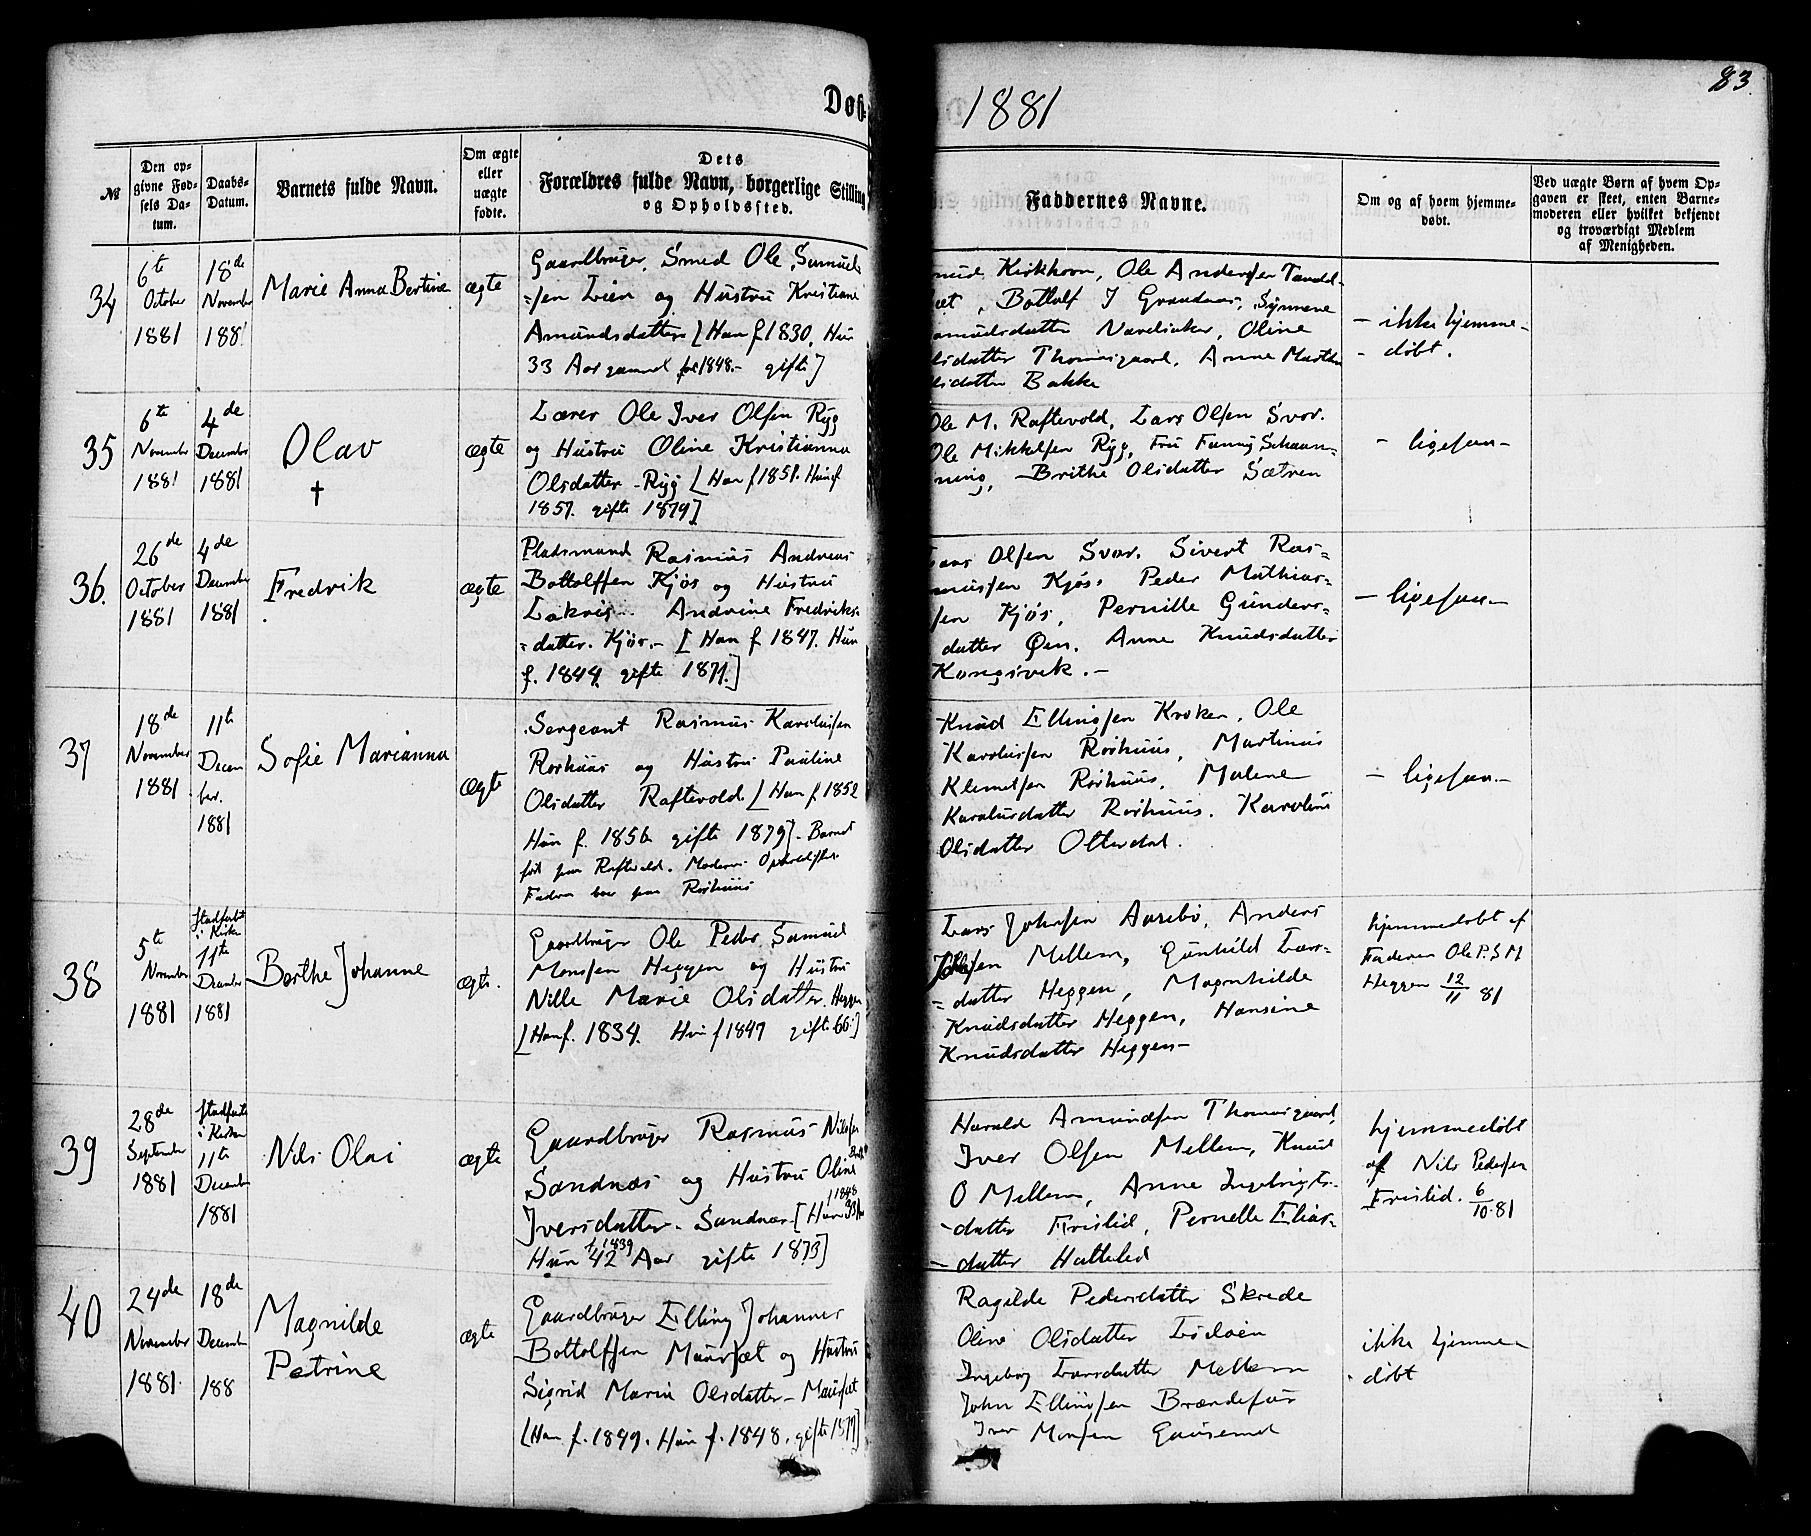 Døb-
1881
83.
№
Den op-
givne Fød-
sels Da-
tum.
Daabs-
Datum.
Barnets fulde Navn.
Om ægte
eller
uægte
fødte.
Dets
Forældres fulde Navn, borgerlige Stilling
og Opholdssted.
Faddernes Navne.
Om og af hvem hjemme-
døbt.
Ved uægte Børn af hvem Op-
gaven er skeet, enten Barne-
moderen eller hvilket bekjendt
og troværdigt Medlem
af Menigheden.
34
6te
October
1881
18de
November
188
Marie Anna Bertine
ægte
Gaardbruger, Smed Ole Samuel-
=sen Lien og Hustru Kristiane
Amundsdatter [Han f 1830, Hun
33 Aar gammel f 1848.- gifte]
Kirkhorn, Ole Andersen
Bottolf J Grandaas, Synneve
Oline
Thomasgaard, Anne Marthe
Bakke
- ikke hjemme-
- døbt.
35
6te
November
1881
4de
December
1881
Olav
†
ægte
Lærer Ole Iver Olsen Ryg
og Hustru Oline Kristianna
Olsdatter - Ryg [Han f 1851. Hun f
1857. gifte 1879]
Ole M. Raftevold, Lars Olsen Svor.
Ole Mikkelsen Ryg, Fru Fanny Schaan-
ning, - Brithe Olsdatter Sætren
- ligesaa -
36.
26de
October
1881
4de
December
1881
Fredrik
ægte
Pladsmand Rasmus Andreas
Bottolfsen Kjøs og Hustru
Andrine Fredriks-
=datter. Kjøs.- [Han f 1847. Hun
f. 1844. gifte 1871.]
Lars Olsen Svor. Sivert Ras=
mussen Kjøs, Peder Mathias-
sen Kjøs, Pernille Gunders-
datter Øen, Anne Knudsdatter
Kongsvik. -
- ligesaa -
37
18de
November
1881
11te
Decem
ber.
1881
Sofie Marianna
ægte
Sergeant Rasmus Karolussen
Rorhuus og Hustru Pauline
Olsdatter Raftevold. [Han f 1852
Hun f. 1856 gifte 1879] - Barnet
født paa Raftevold. Moderens Opholdssted.
Faderen bor paa Rorhuus
Knud Ellingsen Kroken, Ole
Karolussen Rorhuus, Martinus
Klemetsen Rorhuus, Malene
Karolusdatter Rorhuus. Karoline
Olsdatter Otterdal.
- ligesaa -
38
5te
November
1881
stadfæstet
i Kirken
11te
December
1881
Berthe Johanne
ægte.
Gaardbruger Ole Peder Samuel
Monssen Heggen og Hustru
Nille Marie Olsdatter. Heggen
[Han f. 1834. Hun f 1847 gifte 66.]
Lars Johnsen Aarebø, Anders
Mellem, Gunhild Lars-
=datter Heggen, Magnhilde
Knudsdatter Heggen, Hansine
Knudsdatter Heggen -
hjemmedøbt af
Faderen Ole P. S M
Heggen 12/11 81
39
28de
September
1881
stadfæstet
i Kirken
11te
December
1881
Nils Olai
ægte
Gaardbruger Rasmus Nilssen
Sandnæs og Hustru Oline
Iversdatter - Sandnæs [Han
f 1848
Hun 42 Aar gifte 1873]
f. 1839
Harald Amundsen Thomasgaard,
Iver Olsen Mellem, Knud
O Mellem, Anne Ingebrigts-
-datter Frislid, Pernelle Elias-
- datter Hatteled
hjemmedøbt
af Nils Pedersen
Frislid. 6/10.81
40
24de
November
1881.
18de
December
188
Magnilde
Petrine
ægte
Gaardbruger Elling Johannes
Bottolfsen Maursæt og Hustru
Sigrid Marie Olsdatter - Maursæt
[Han f. 1849. Hun f. 1848. gifte 1879]
Ragilde Pedersdatter Skrede
Oline Olsdatter
Ingeborg Larsdatter Mellem
John Ellingsen Brændefur
Iver Monsen Gausemel
ikke hjemme
- døbt